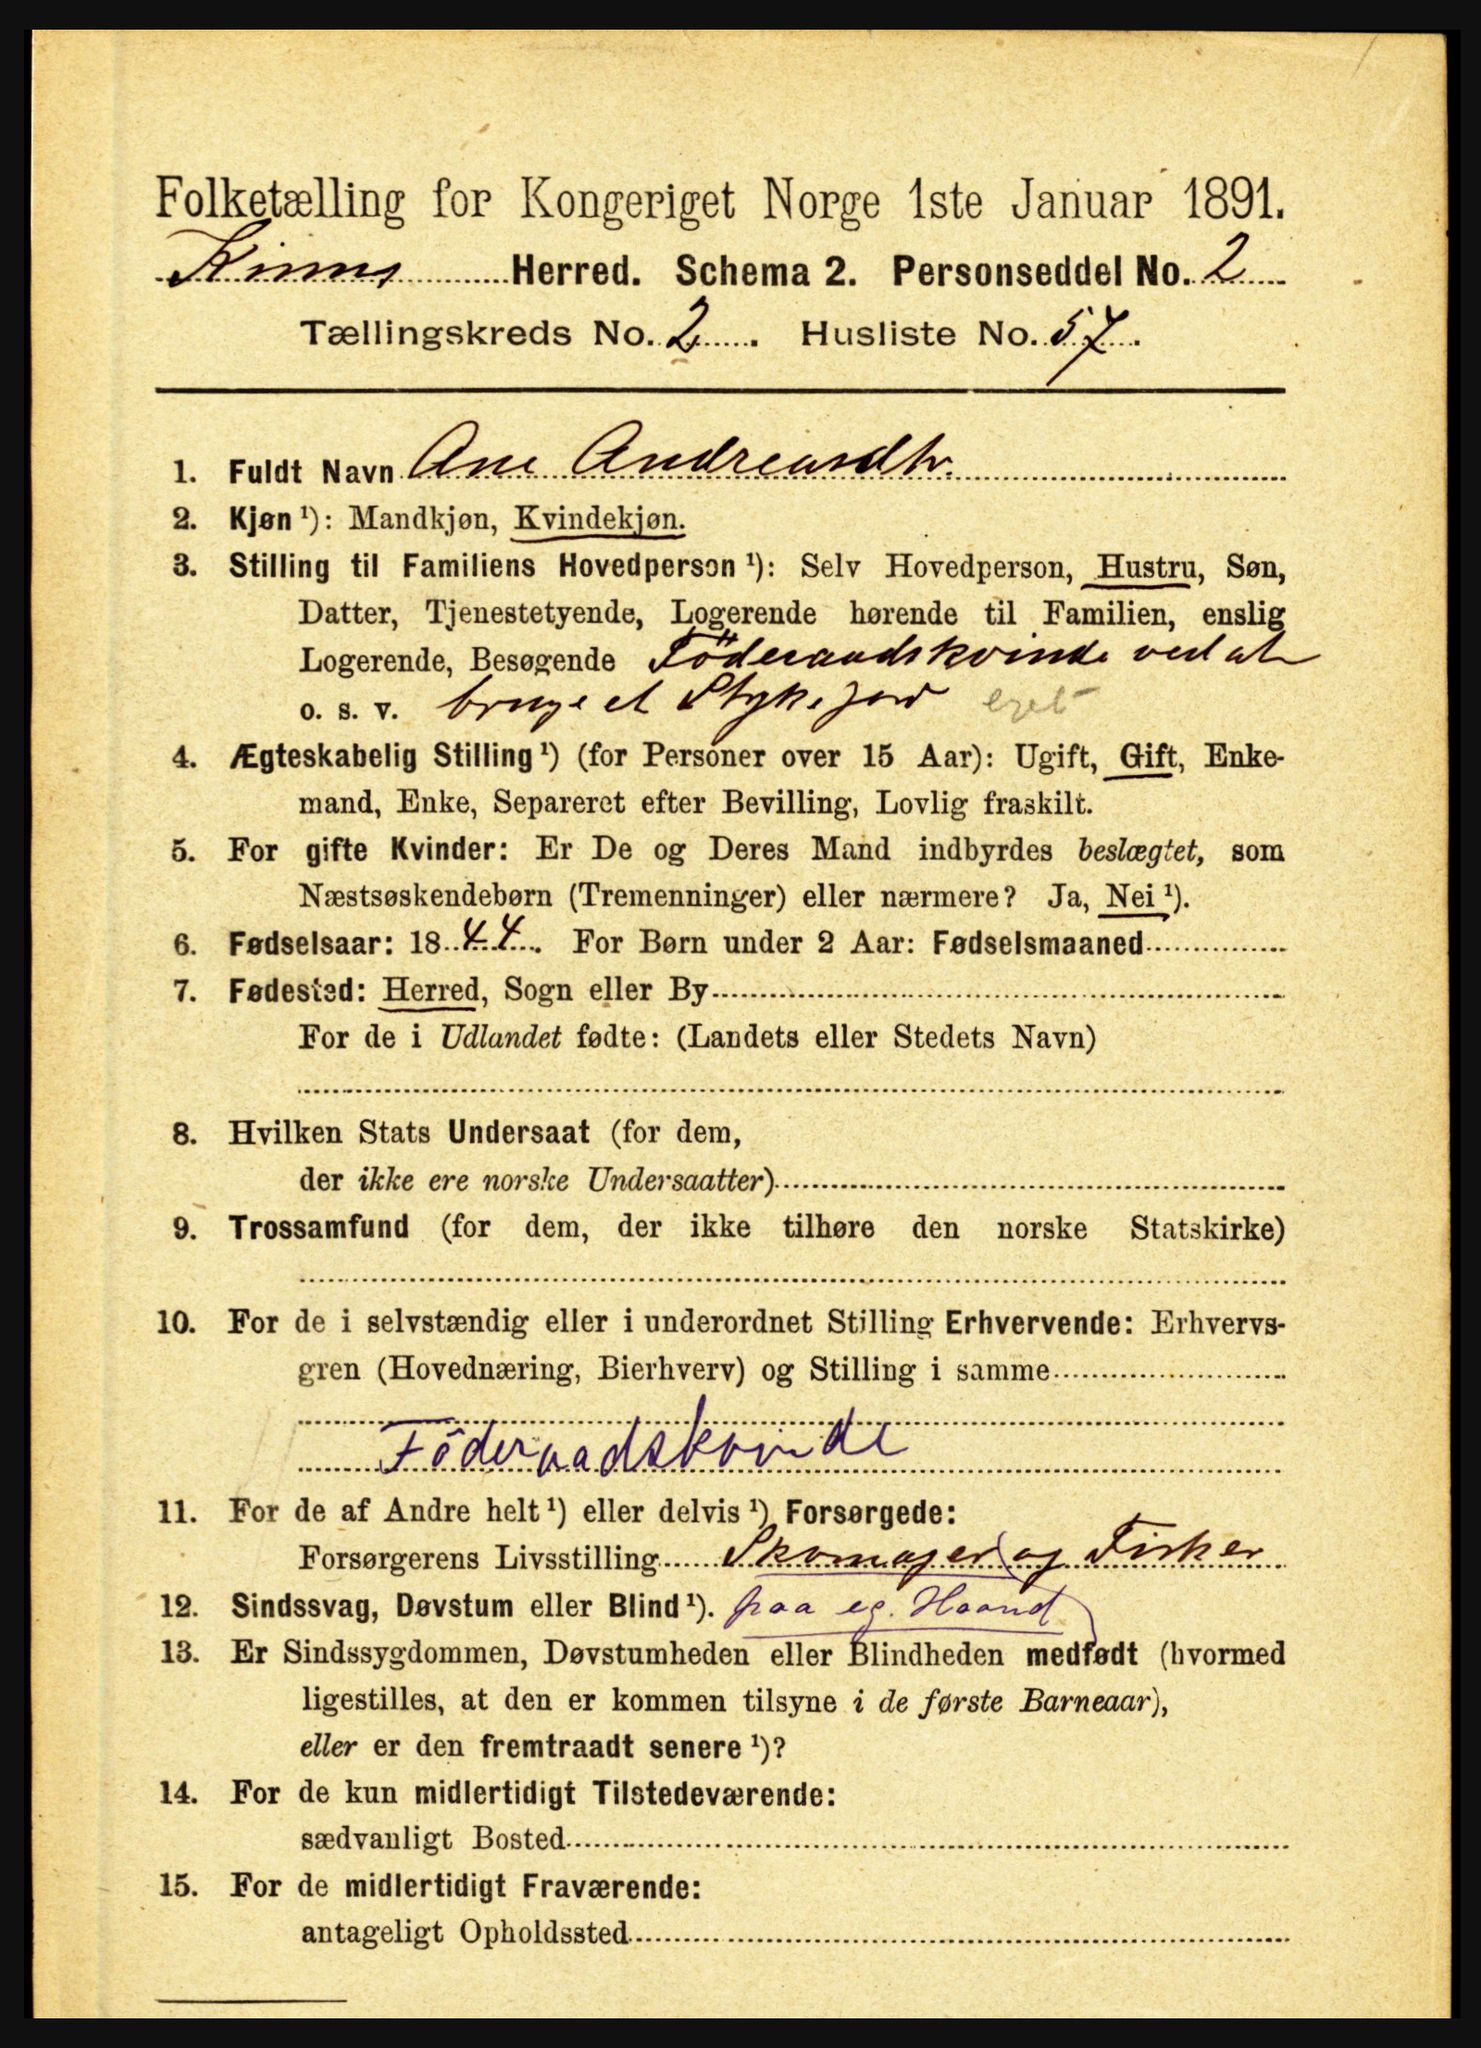 Folketælling for Kongeriget Norge 1ste Januar 1891.
Kinns Herred. Schema 2. Personseddel No. 2
Tællingskreds No. 2. Husliste No. 57.
1. Fuldt Navn Ane Andreasdtr.
2. Kjøn ¹): Mandkjøn, Kvindekjøn.
3. Stilling til Familiens Hovedperson ¹): Selv Hovedperson, Hustru, Søn,
Datter, Tjenestetyende, Logerende hørende til Familien, enslig
Logerende, Besøgende Föderaadskvinde ved at
o. s. v. bruge et Stykke jord eget
4. Ægteskabelig Stilling ¹) (for Personer over 15 Aar): Ugift, Gift, Enke-
mand, Enke, Separeret efter Bevilling, Lovlig fraskilt.
5. For gifte Kvinder: Er De og Deres Mand indbyrdes beslægtet, som
Næstsøskendebørn (Tremenninger) eller nærmere? Ja, Nei ¹).
6. Fødselsaar: 1844. For Børn under 2 Aar: Fødselsmaaned
7. Fødested: Herred, Sogn eller By
For de i Udlandet fødte: (Landets eller Stedets Navn)
8. Hvilken Stats Undersaat (for dem,
der ikke ere norske Undersaatter)
9. Trossamfund (for dem, der ikke tilhøre den norske Statskirke)
10. For de i selvstændig eller i underordnet Stilling Erhvervende: Erhvervs-
gren (Hovednæring, Bierhverv) og Stilling i samme
Föderaadskvinde
11. For de af Andre helt ¹) eller delvis ¹) Forsørgede:
Forsørgerens Livsstilling Skomager og Fisker
12. Sindssvag, Døvstum eller Blind ¹). paa eg. Haand
13. Er Sindssygdommen, Døvstumheden eller Blindheden medfødt (hvormed
ligestilles, at den er kommen tilsyne i de første Barneaar),
eller er den fremtraadt senere ¹)?
14. For de kun midlertidigt Tilstedeværende:
sædvanligt Bosted
15. For de midlertidigt Fraværende:
antageligt Opholdssted